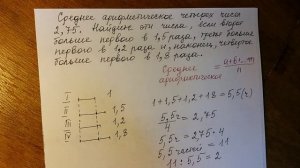 Среднее арифметическое четырех чисел
2,75. Найдите эти числа, если второе
больше первого в 1,5 раза, третье больше
первого в 1,2 раза и, наконец, четвертое
больше первого в 1,8 раза.
Среднее
арифметическое
a+b+...
n
I 1
II 1,5
III 1,2
IV 1,8
1+1,5+1,2+1,8=5,5(ч)
5,5ч/4 = 2,75
5,5ч = 2,75·4
5,5 частей = 11
11:5,5=2